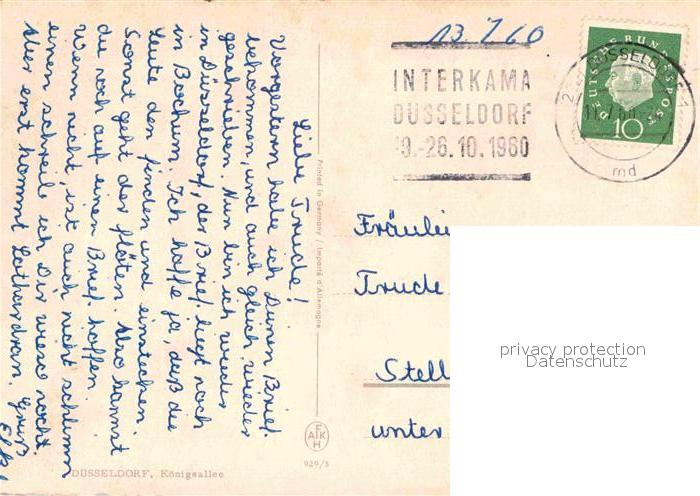 Liebe Trude!
Vorgestern habe ich Deinen Brief
bekommen, und auch gleich wieder
geschrieben. Nun bin ich wieder
in Düsseldorf, der Brief liegt noch
in Bochum. Ich hoffe ja, daß die
Leute den finden und einstecken.
Sonst geht der flöten. Also kannst
du noch auf einen Brief hoffen.
Wenn nicht, ist auch nicht schlimm
einen schreibe ich Dir wieso nocht.
Aber erst kommt Lothardran. Gruß
13.7.60
INTERKAMA
DÜSSELDORF
19.-26.10.1960
DÜSSELDORF
md
DEUTSCHE BUNDESPOST
10
Printed in Germany / Importé d'Allemagne
Fräulei
Trude
Stell
unter
privacy protection
Datenschutz
AFKH
929/3
DÜSSELDORF, Königsallee